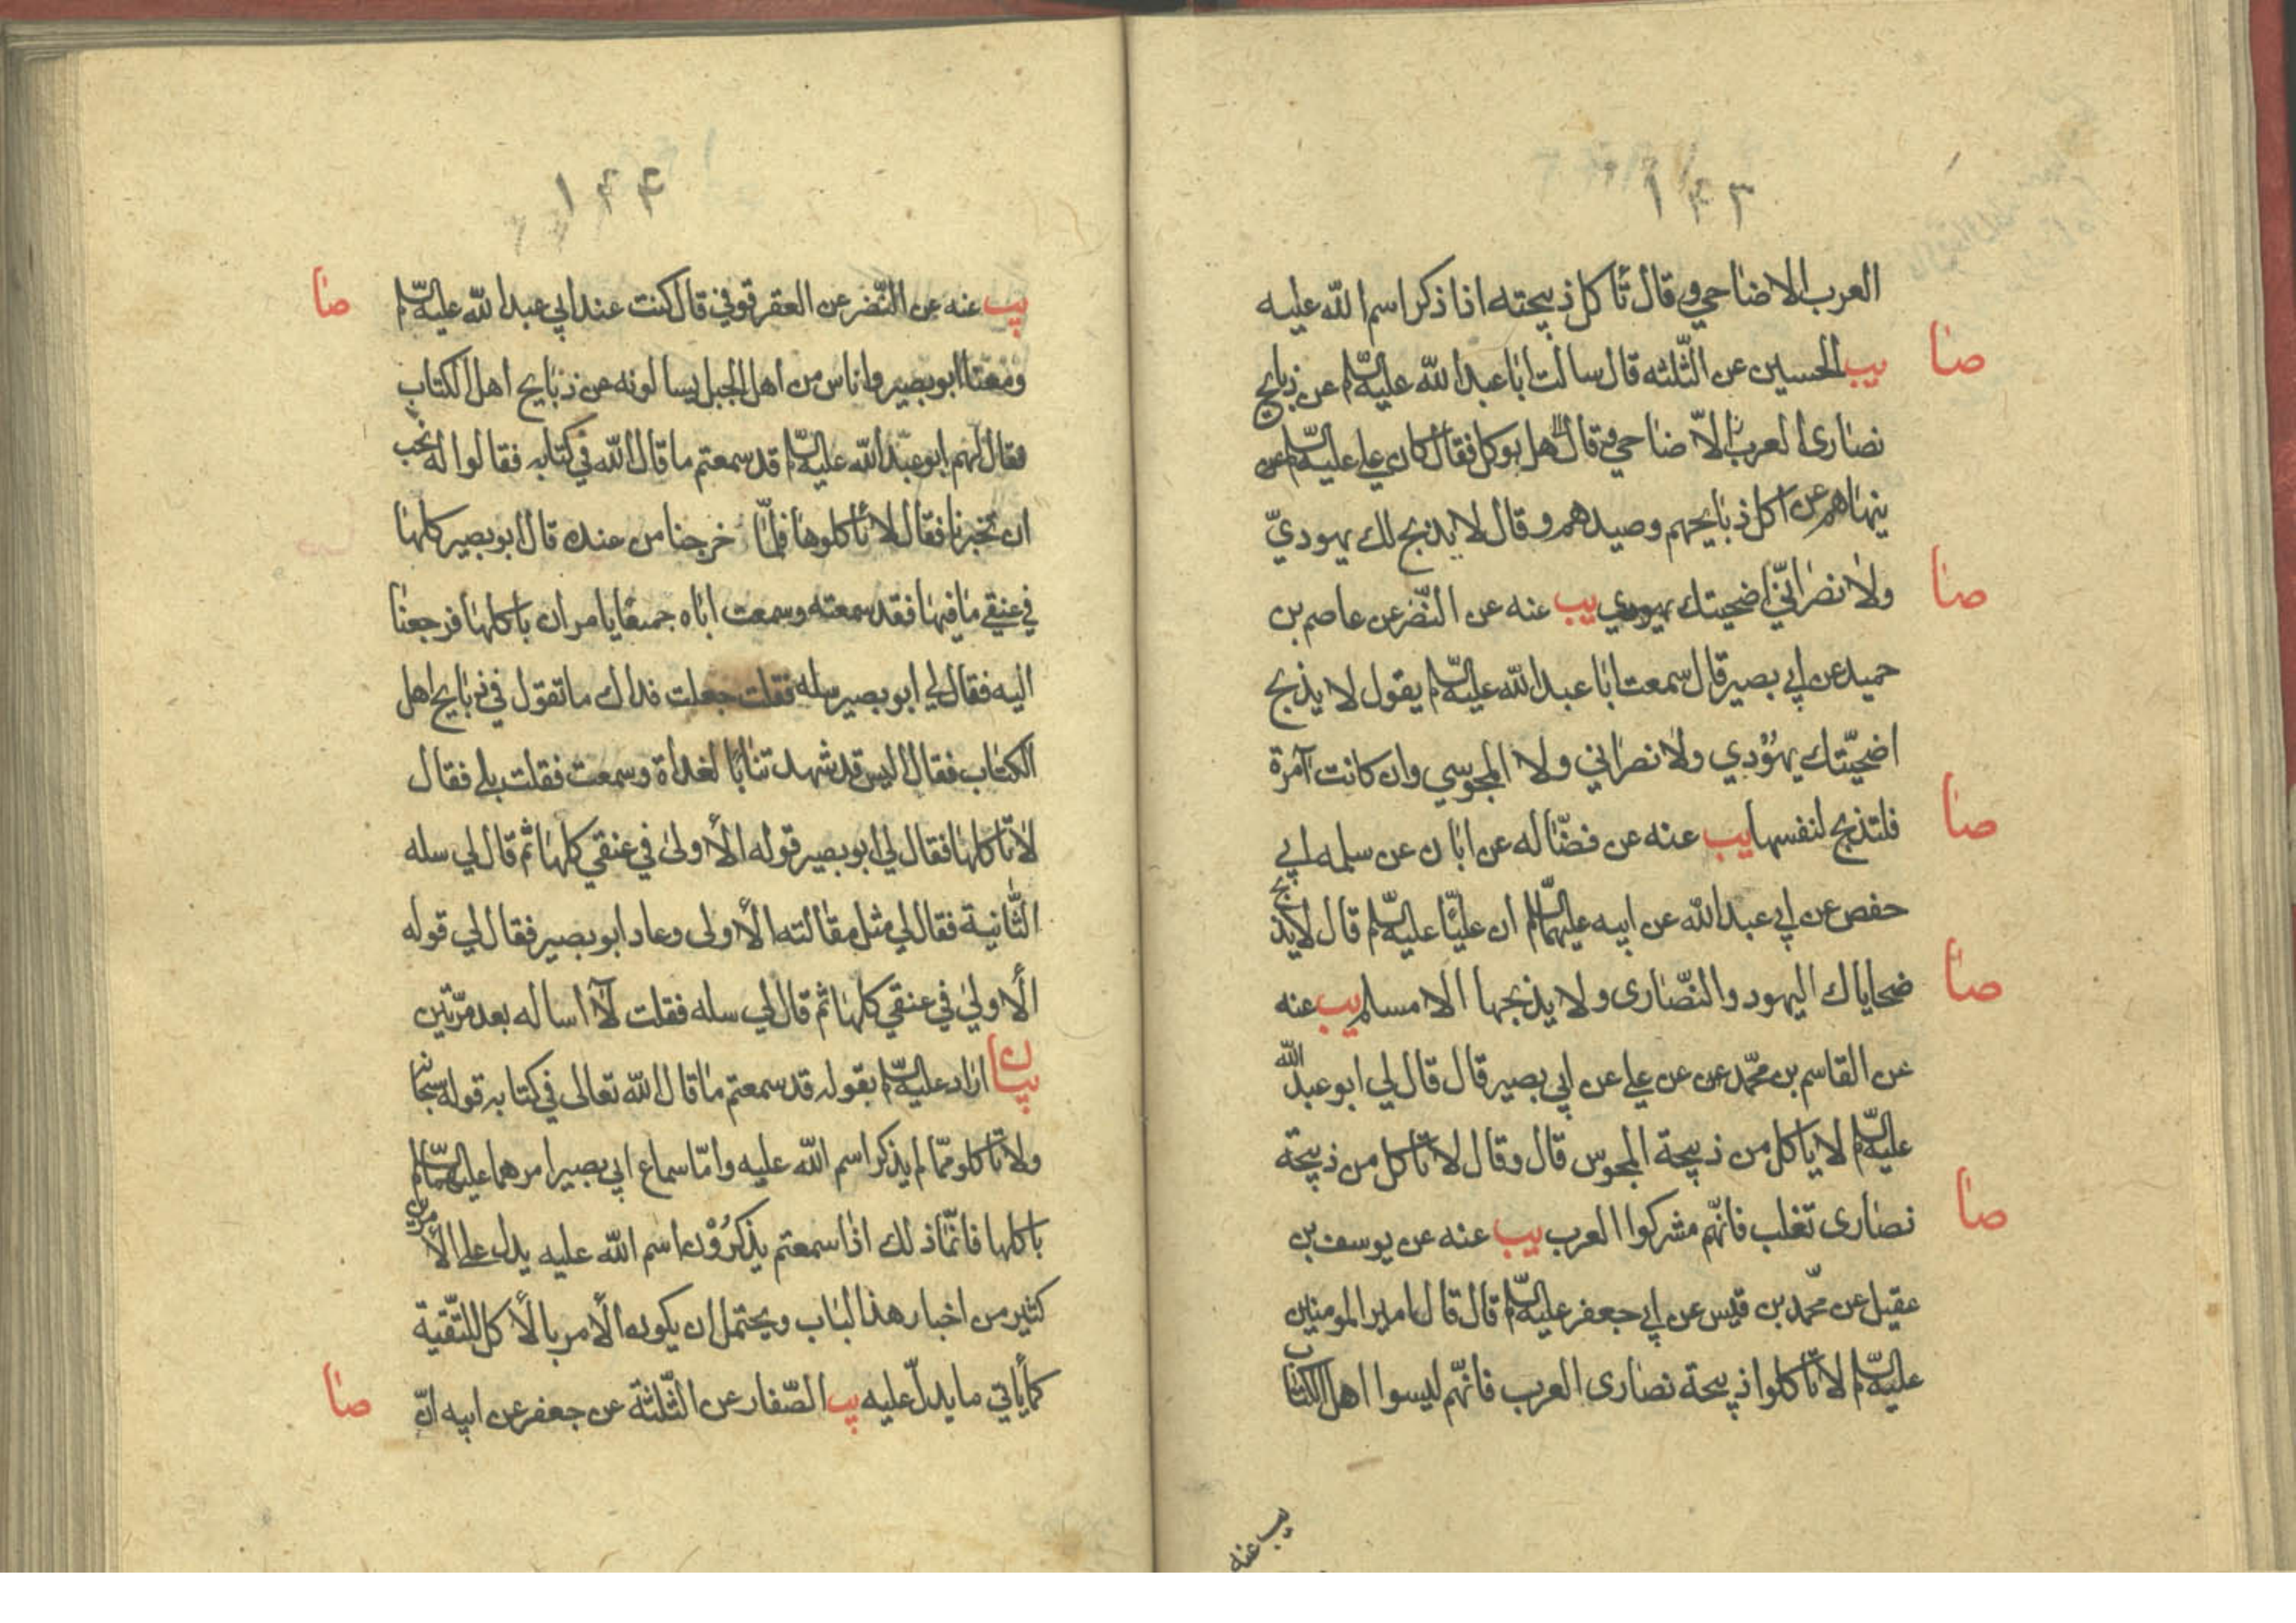 ١٤٣
العرب الاضاحي وقال تأكل ذبيحته اذا ذكر اسم الله عليه
صا
يب الحسين عن الثلثه قال سالت ابا عبد الله عليه السلم عن ذبايح
نصارى العرب الاضاحي قال هل يوكل فقال كان علي عليه السلم
ينهاهم عن اكل ذبايحهم وصيدهم وقال لا يذبح لك يهودي
صا
ولا نصراني اضحيتك يب عنه عن النضر عن عاصم بن
حميد عن ابي بصير قال سمعت ابا عبد الله عليه السلم يقول لا يذبح
اضحيتك يهودي ولا نصراني ولا المجوسي وان كانت آمرة
صا
فلتذبح لنفسها يب عنه عن فضاله عن ابان عن سلمه ابي
حفص عن ابي عبد الله عن ابيه عليهما السلم ان عليا عليه السلم قال لا يذبح
صا
ضحاياك اليهود والنصارى ولا يذبحها الا مسلم يب عنه
عن القاسم بن محمد عن علي عن ابي بصير قال قال لي ابو عبد الله
عليه السلم لا ياكل من ذبيحة المجوس قال وقال لا تاكل من ذبيحة
صا
نصارى تغلب فانهم مشركوا العرب يب عنه عن يوسف بن
عقيل عن محمد بن قيس عن ابي جعفر عليه السلم قال قال امير المومنين
عليه السلم لا تاكلوا ذبيحة نصارى العرب فانهم ليسوا اهل الكتاب
يب عنه
١٤٤
صا
يب عنه عن النضر عن العقرقوفي قال كنت عند ابي عبد الله عليه السلم
ومعنا ابو بصير واناس من اهل الجبل يسالونه عن ذبايح اهل الكتاب
فقال لهم ابو عبد الله عليه السلم قد سمعتم ما قال الله في كتابه فقالوا له نحب
ان تخبرنا فقال لا تاكلوها فلما خرجنا من عنده قال ابو بصير كلها
في عنقي ما فيها فقد سمعته وسمعت اباه جميعا يامران باكلها فرجعنا
اليه فقال لي ابو بصير سله فقلت جعلت فداك ما تقول في ذبايح اهل
الكتاب فقال اليس قد شهدتنا بالغداة وسمعت فقلت بلى فقال
لا تاكلها فقال لي ابو بصير قوله الاولى في عنقي كلها ثم قال لي سله
الثانية فقال لي مثل مقالته الاولى وعاد ابو بصير فقال لي قوله
الاولى في عنقي كلها ثم قال لي سله فقلت لا اساله بعد مرتين
بيان اراد عليه السلم بقوله قد سمعتم ما قال الله تعالى في كتابه قوله سبحانه
ولا تاكلو مما لم يذكر اسم الله عليه واما سماع ابي بصير امرهما عليهما السلم
باكلها فانما ذلك اذا سمعتم يذكرون اسم الله عليه يدل على الامرين
كثير من اخبار هذا الباب ويحتمل ان يكون الامر بالاكل للتقية
صا
كما ياتي ما يدل عليه يب الصفار عن الثلثة عن جعفر عن ابيه ان